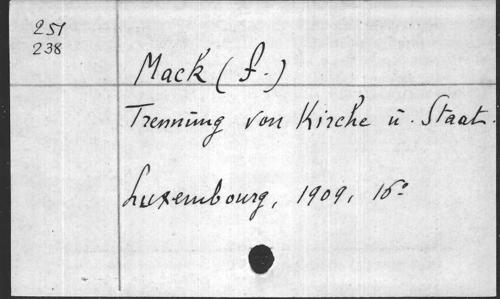 251
238
Mack (f.)
Trennung von Kirche u. Staat.
Luxembourg, 1909, 16º